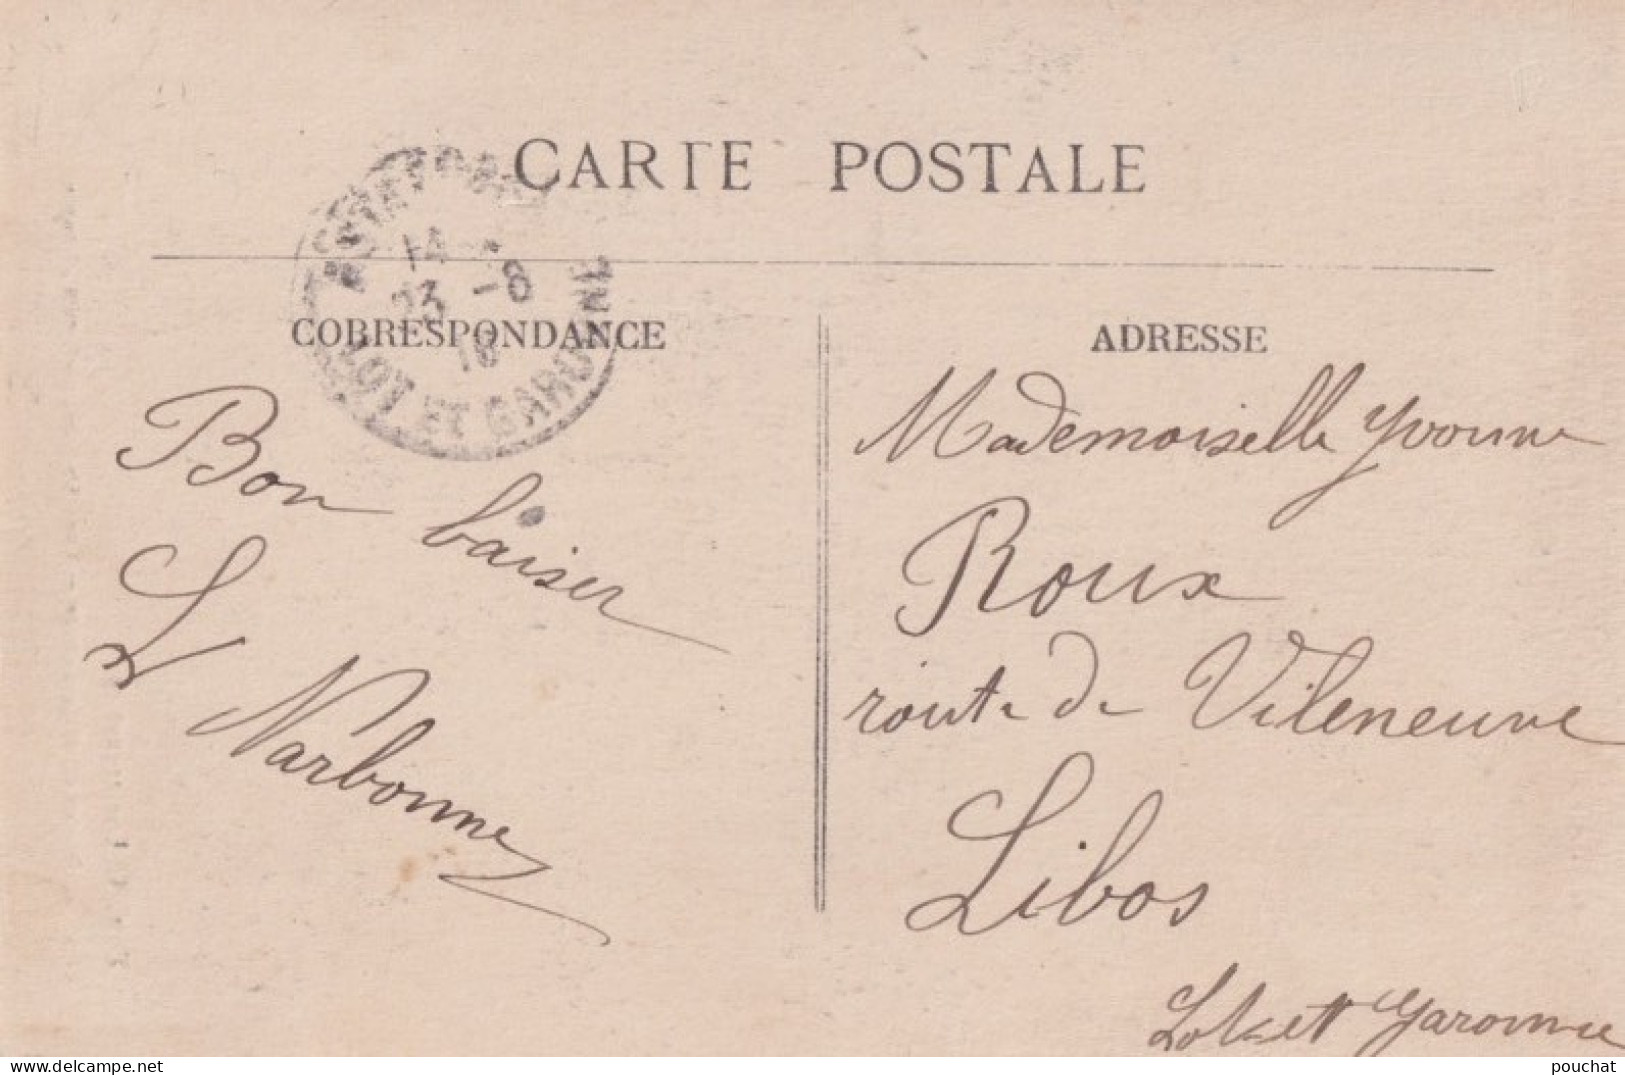 CARTE POSTALE
14
-8
LOT ET GARONNE
CORRESPONDANCE
Bon baiser
L Narbonne
ADRESSE
Mademoiselle Yvonne
Roux
route de Vileneuve
Libos
Lot et Garonne
delcampe.net
pouchat